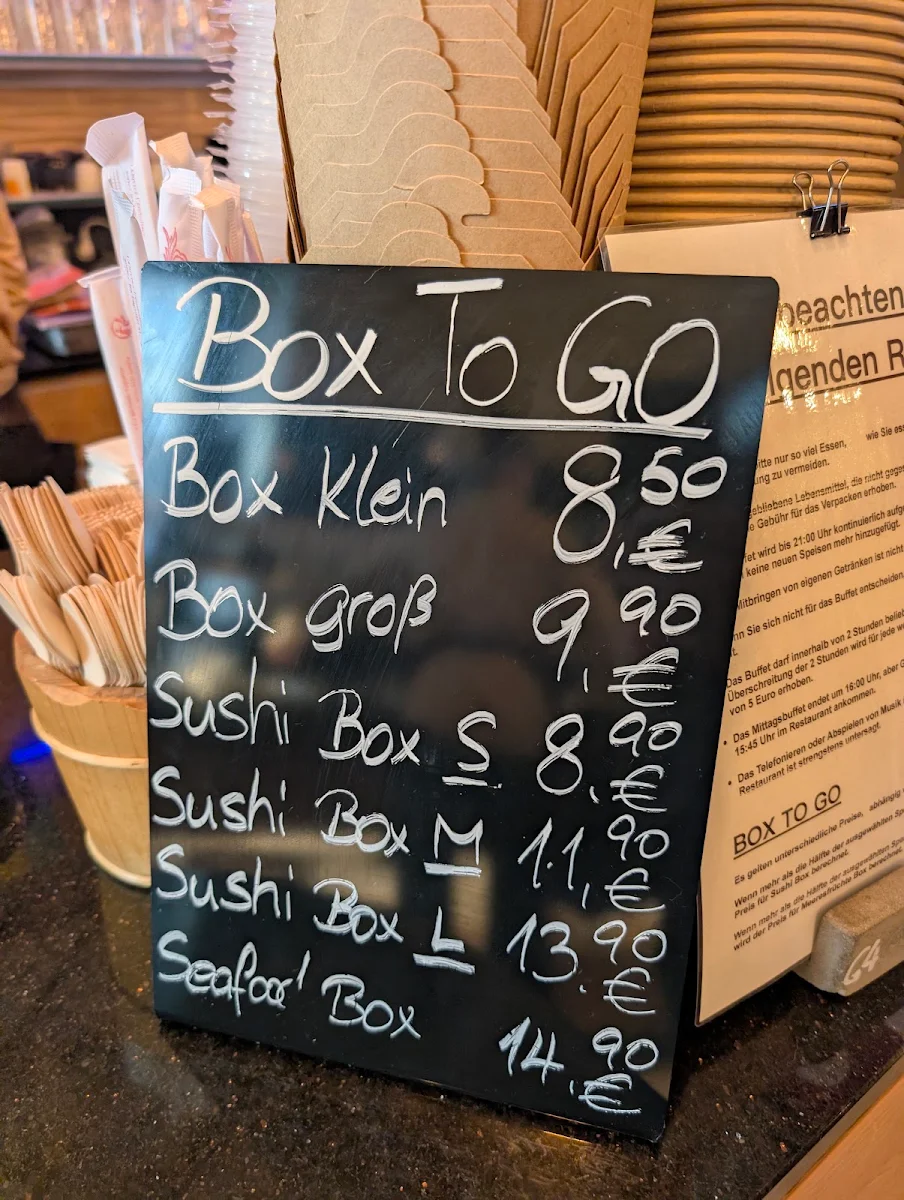 BOX TO GO
Box Klein 8,50 €
Box groß 9,90 €
Sushi Box S 8,90 €
Sushi Box M 11,90 €
Sushi Box L 13,90 €
Seafood Box 14,90 €
beachten
lgenden R
itte nur so viel Essen, wie Sie es
ng zu vermeiden.
gebliebene Lebensmittel, die nicht geges
e Gebühr für das Verpacken erhoben.
fet wird bis 21:00 Uhr kontinuierlich aufge
keine neuen Speisen mehr hinzugefügt.
Mitbringen von eigenen Getränken ist nicht
nn Sie sich nicht für das Buffet entscheiden,
t.
Das Buffet darf innerhalb von 2 Stunden belieb
Überschreitung der 2 Stunden wird für jede w
von 5 Euro erhoben.
• Das Mittagsbuffet endet um 16:00 Uhr, aber G
15:45 Uhr im Restaurant ankommen.
• Das Telefonieren oder Abspielen von Musik
Restaurant ist strengstens untersagt.
BOX TO GO
Es gelten unterschiedliche Preise, abhängig
Wenn mehr als die Hälfte der ausgewählten Sp
Preis für Sushi Box berechnet.
Wenn mehr als die Hälfte der ausgewählten Spe
wird der Preis für Meeresfrüchte Box berechnet.
G4